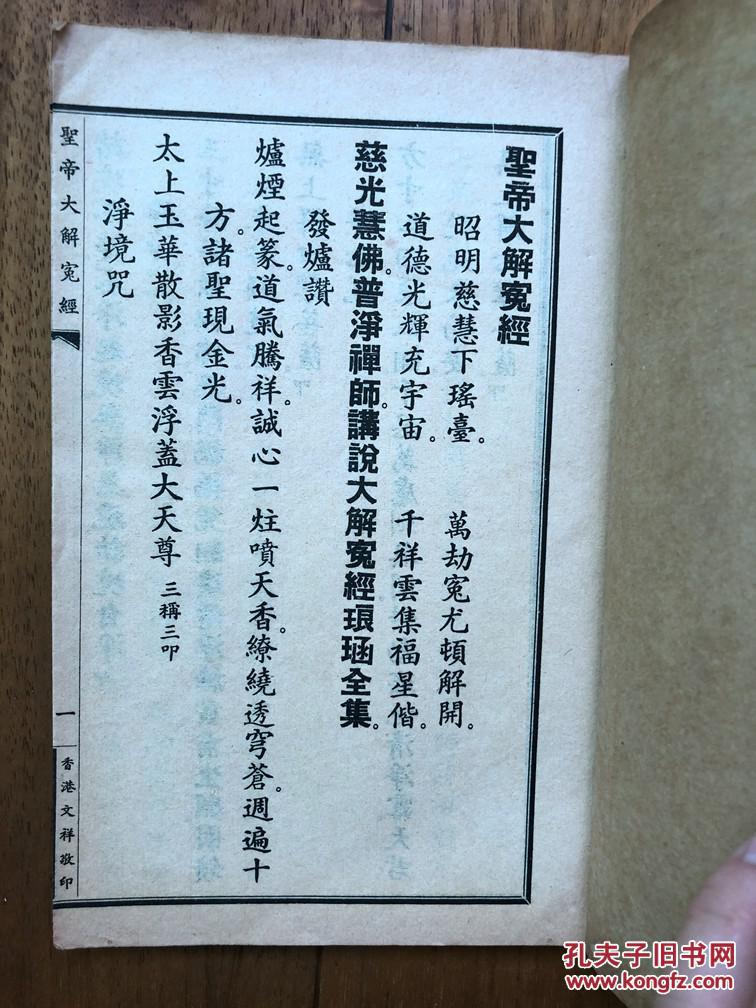 聖帝大解寃經
昭明慈慧下瑤臺。 萬劫寃尤頓解開。
道德光輝充宇宙。 千祥雲集福星偕。
慈光慧佛。普淨禪師。講說大解寃經琅函全集。
發爐讚
爐煙起篆。道氣騰祥。誠心一炷噴天香。繚繞透穹蒼。週遍十
方。諸聖現金光。
太上玉華散影香雲浮蓋大天尊 三稱三叩
淨境咒
聖帝大解寃經
一
香港文祥敬印
孔夫子旧书网
www.kongfz.com